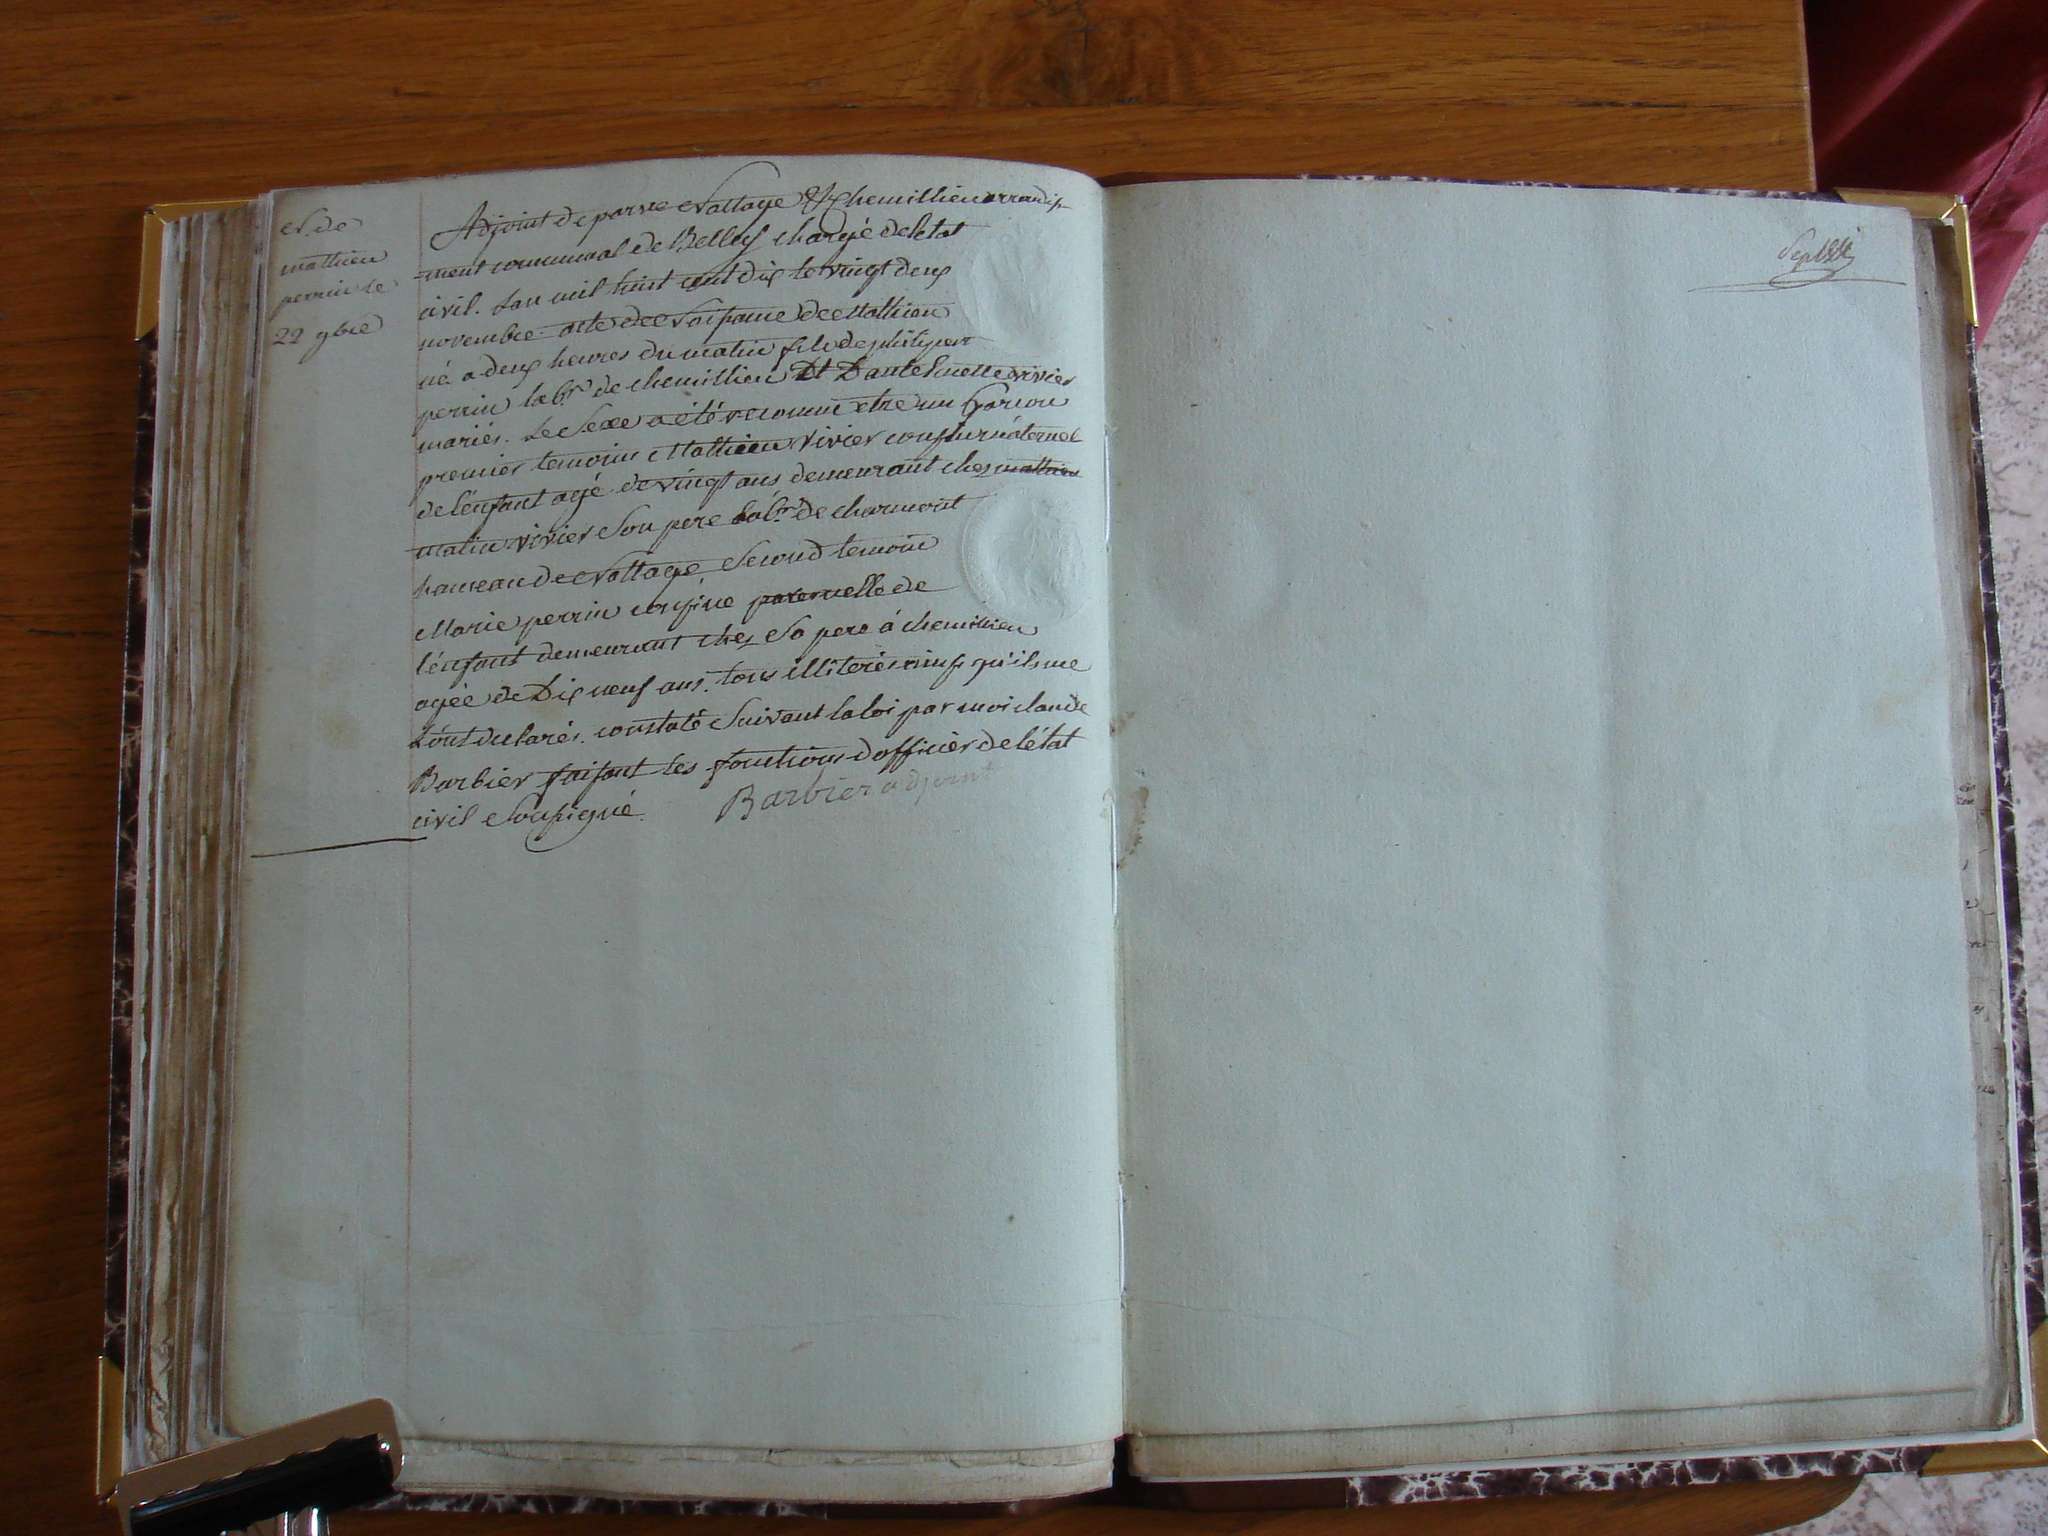 N. de
mathieu
perrin le
22 9bre
Adjoint de parve Nattage & Chemillieu arrondis-
-ment communal de Belley chargé de letat
civil. Lan mil huit cent dix le vingt deux
novembre acte de Naissance de Mathieu
né a deux heures du matin fils de philipert
perrin labr. de chemillieu Et D'antelmette vivier
mariés. Le Sexe a été reconnu etre un Garcon
premier temoin Mathieu vivier cousin maternel
de l'enfant agé de vingt ans demeurant chez mathieu
vivier son pere labr. de charmont
hameau de Nattage Second temoin
Marie perrin cousine paternelle de
l'enfant demeurant chez Sa pere à chemillieu
agée de Dix neuf ans. tous illiterés ainsi qu'ils me
L'ont declarés. constaté Suivant la loi par moi claude
Barbier faisant les fonctions d'officier de l'état
civil Sousigné. Barbier adjoint